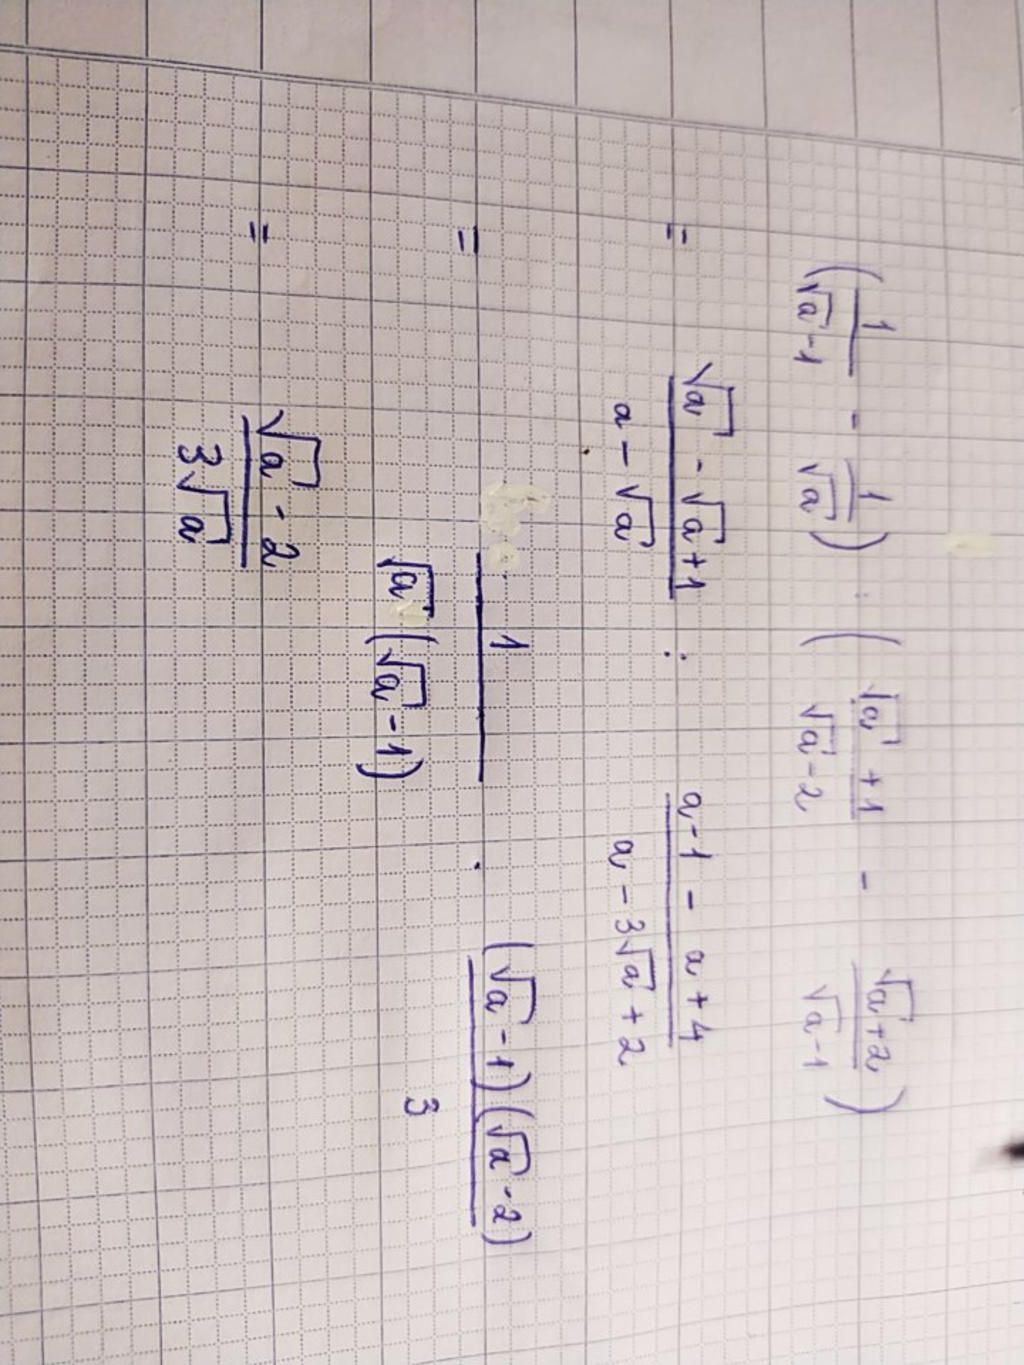 (1/(√a-1) - 1/√a) : ((√a+1)/(√a-2) - (√a+2)/(√a-1))
= (√a-√a+1)/(a-√a) : (a-1-a+4)/(a-3√a+2)
= 1/(√a(√a-1)) · ((√a-1)(√a-2))/3
= (√a-2)/(3√a)